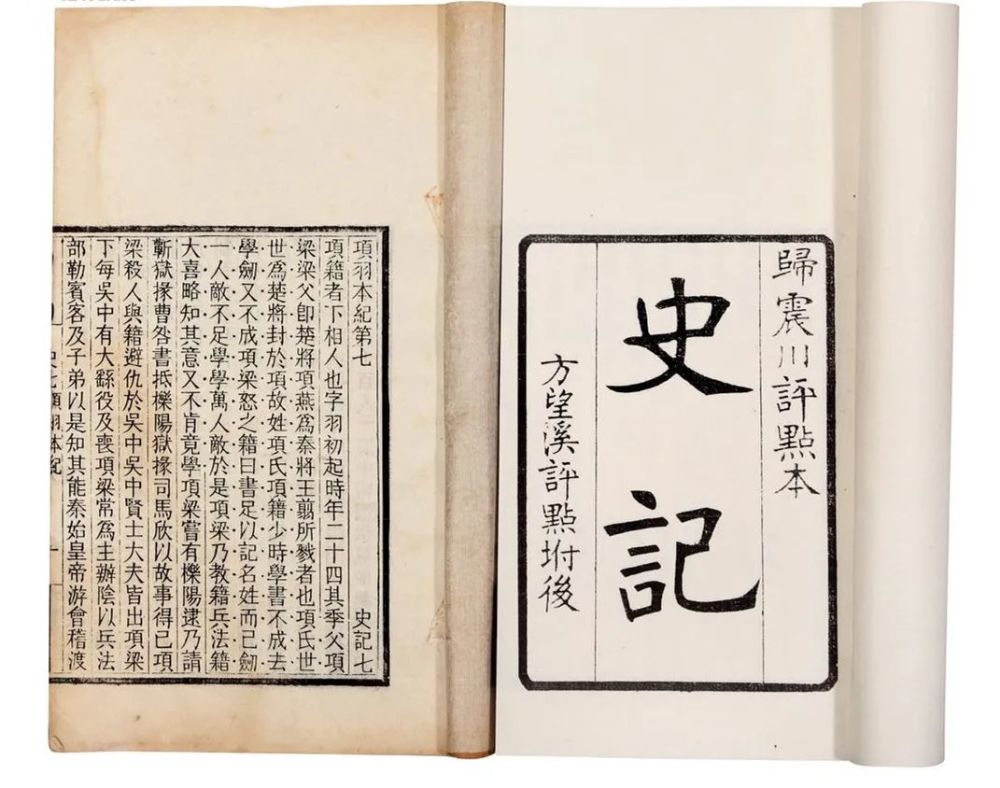 歸震川評點本
史記
方望溪評點坿後
項羽本紀第七 史記七
項籍者下相人也字羽初起時年二十四其季父項
梁梁父卽楚將項燕爲秦將王翦所戮者也項氏世
世爲楚將封於項故姓項氏項籍少時學書不成去
學劒又不成項梁怒之籍曰書足以記名姓而已劒
一人敵不足學學萬人敵於是項梁乃教籍兵法籍
大喜略知其意又不肯竟學項梁嘗有櫟陽逮乃請
蘄獄掾曹咎書抵櫟陽獄掾司馬欣以故事得已項
梁殺人與籍避仇於吳中吳中賢士大夫皆出項梁
下每吳中有大繇役及喪項梁常爲主辦陰以兵法
部勒賓客及子弟以是知其能秦始皇帝游會稽渡
史七項羽本紀